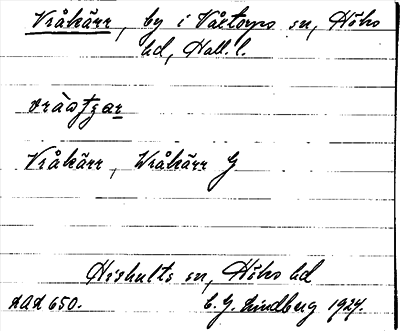 Vråkärr, by i Våxtorps sn, Höks
hd, Hall. l.
vråstjar
Vråkärr, Wråkärr G
Hishults sn, Höks hd
DAL 650. C. G. Lindberg 1924.